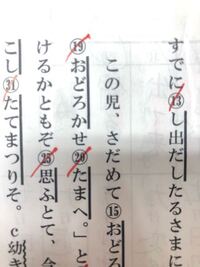 すでに⑬し出だしたるさまに
この児、さだめて⑮おどろ
⑲おどろかせ⑳たまへ。」と
けるかともぞ㉕思ふとて、今
こし㉛たてまつりそ。c幼き